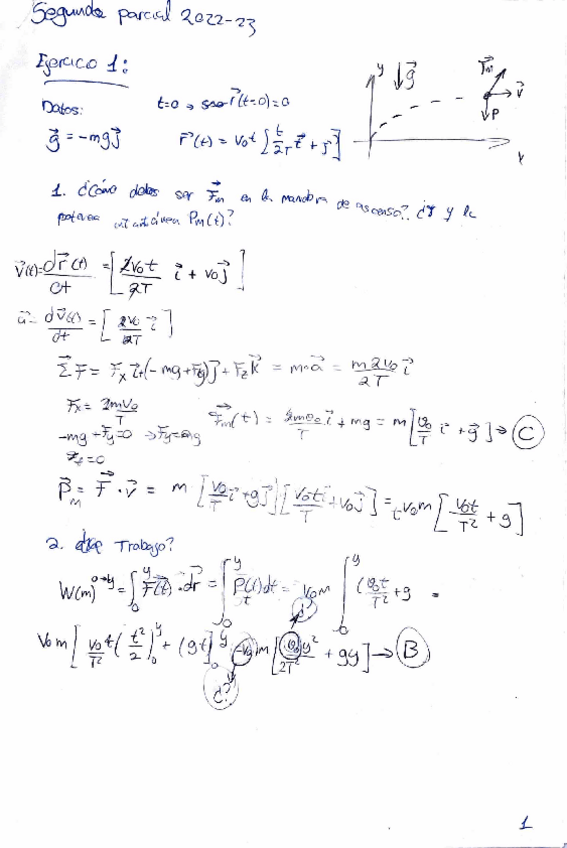 Segundo parcial 2022-23
Ejercicio 1:
Datos: t=0 → r⃗(t=0)=0
g⃗ = -mg j⃗ r⃗(t) = v₀t [t/2T i⃗ + j⃗]
y ↓g⃗ F⃗m v⃗ P x
1. ¿Cómo debe ser F⃗m en la maniobra de ascenso? ¿Y la
potencia instantánea Pm(t)?
v⃗(t)= dr⃗(t)/dt = [2v₀t/2T i⃗ + v₀j⃗]
a⃗ = dv⃗(t)/dt = [2v₀/2T i⃗]
Σ⃗F = Fx i⃗+(-mg+Fy)j⃗+Fz k⃗ = m·a⃗ = m2v₀/2T i⃗
Fx = 2mv₀/T
-mg+Fy=0 ⇒ Fy=mg F⃗m(t) = i⃗ + mg = m[v₀/T i⃗ + g⃗] → C
Fz=0
P⃗m = F⃗·v⃗ = m [v₀/T i⃗+gj⃗][v₀t/T i⃗+v₀j⃗] = v₀m [v₀t/T² + g]
2. Trabajo?
W(m)⁰→ʸ = ∫₀ʸ F⃗(t)·dr⃗ = ∫₀ʸ P(t)dt = v₀m ∫₀ʸ (v₀t/T² + g =
v₀m [v₀/T² (t²/2)₀ʸ + (gt)₀ʸ = v₀m [v₀y²/2T² + gy] → B
¿?
¿?
1